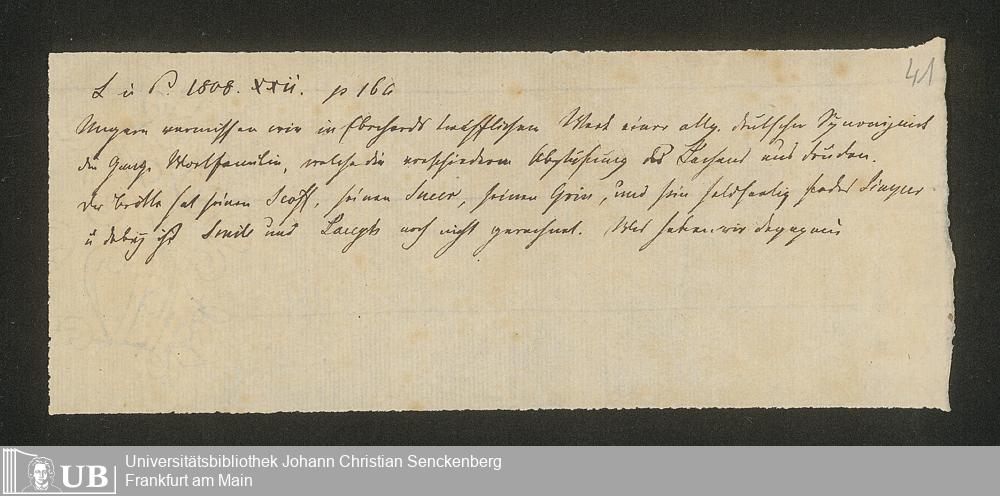 L u P. 1808. XXII. p 160
41
Ungern vermissen wir in Eberhards trefflichem Werk einer allg. deutschen Synonymik
die ganze Wortfamilie, welche die verschiedenen Abstufung des Lachens aus drucken.
Der Britte hat seinen Scoff, seinen Sneer, seinen Grin, und sein
u dabey ist Smile und Laugh noch nicht gerechnet. Was haben wir dagegen
UB
Universitätsbibliothek Johann Christian Senckenberg
Frankfurt am Main